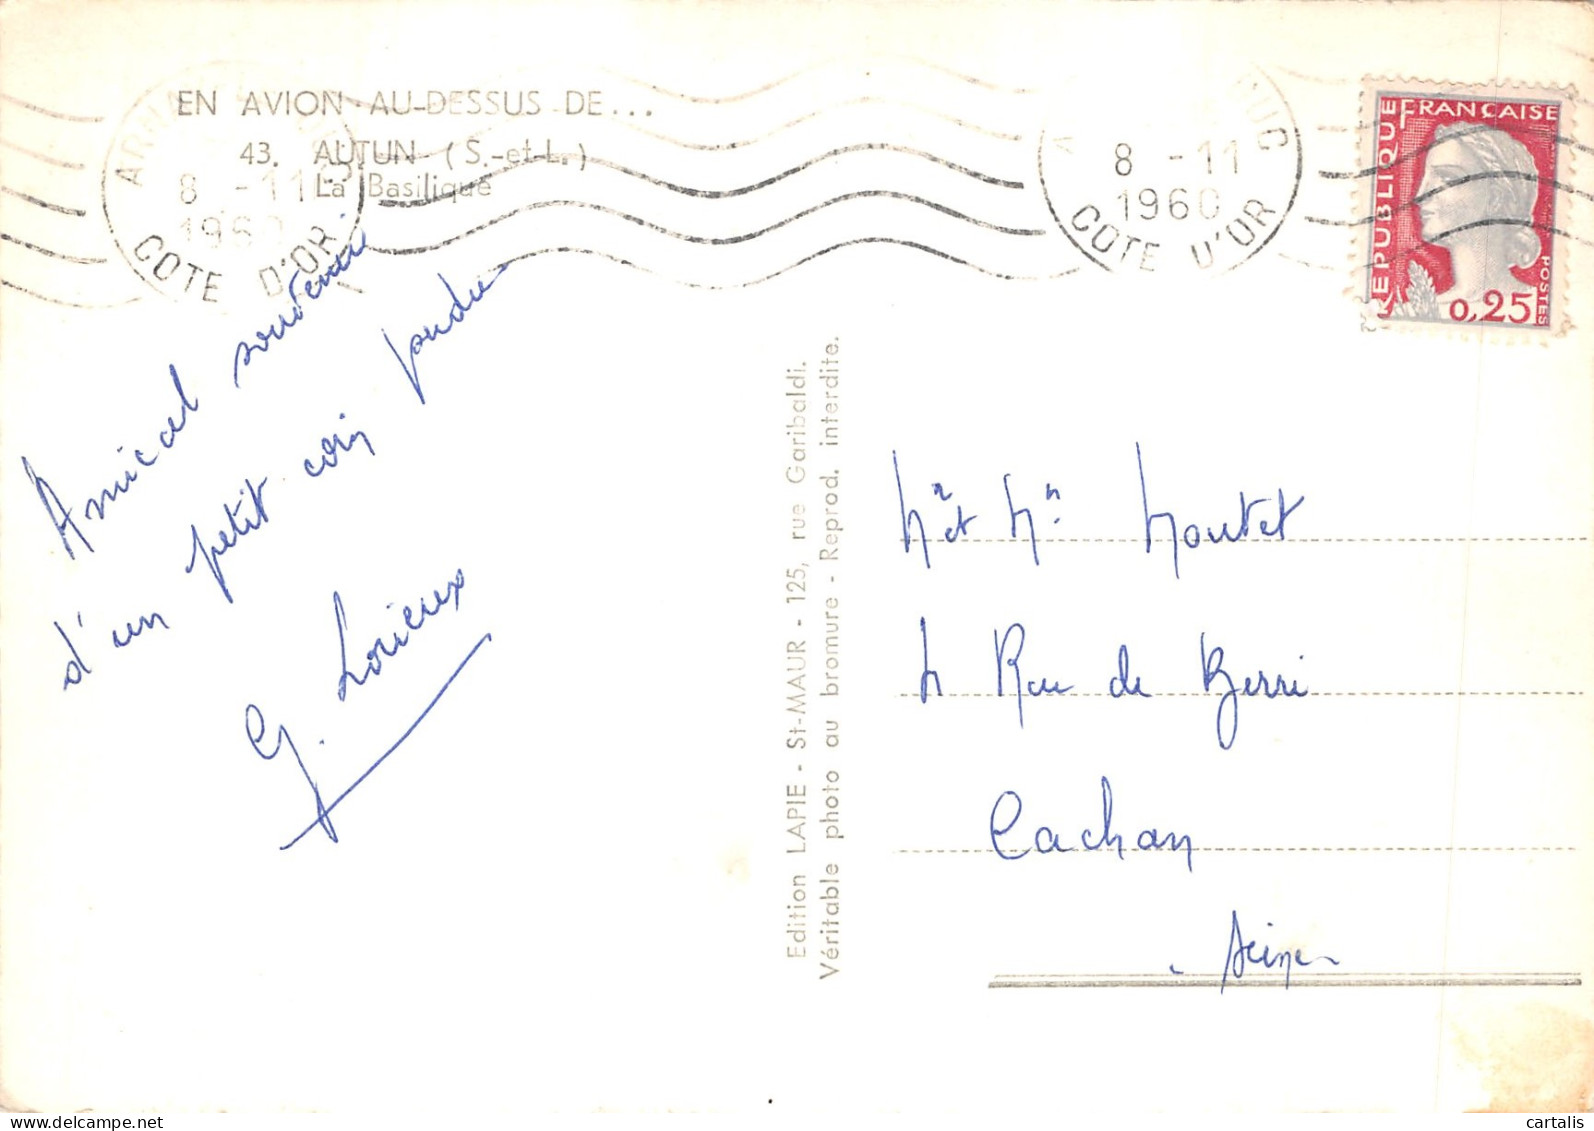 EN AVION AU-DESSUS DE...
43. AUTUN (S.-et-L.)
La Basilique
8 -11
1960
COTE D'OR
8 -11
1960
COTE D'OR
RÉPUBLIQUE FRANÇAISE
POSTES
0,25
Amical souvenir
d'un petit coin perdu
G. Lorieux
Edition LAPIE - St-MAUR - 125, rue Garibaldi.
Véritable photo au bromure - Reprod. interdite.
Mr et Mme Moutet
4 Rue de Berri
Cachan
- Seine -
cartalis